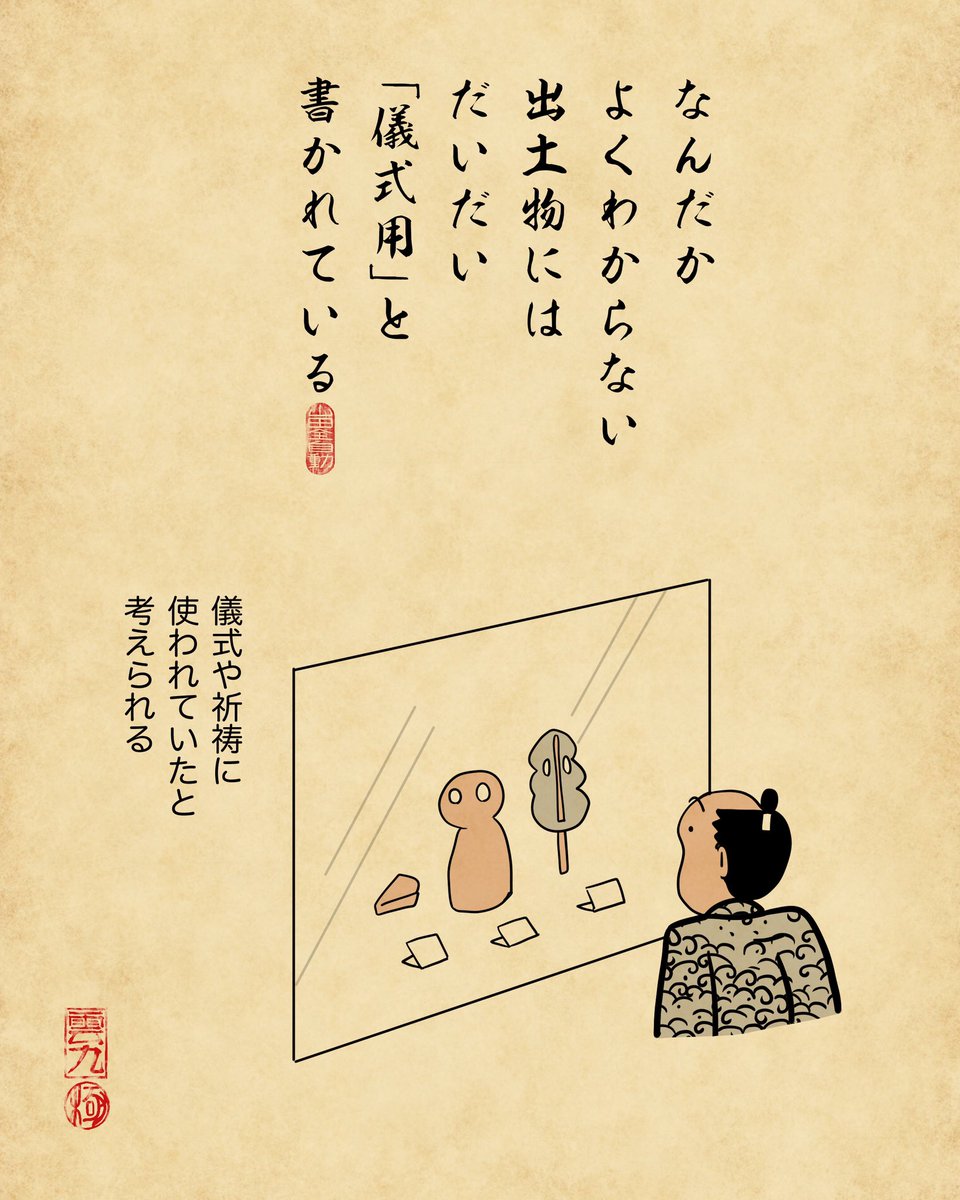 なんだか
よくわからない
出土物には
だいだい
「儀式用」と
書かれている
儀式や祈祷に
使われていたと
考えられる